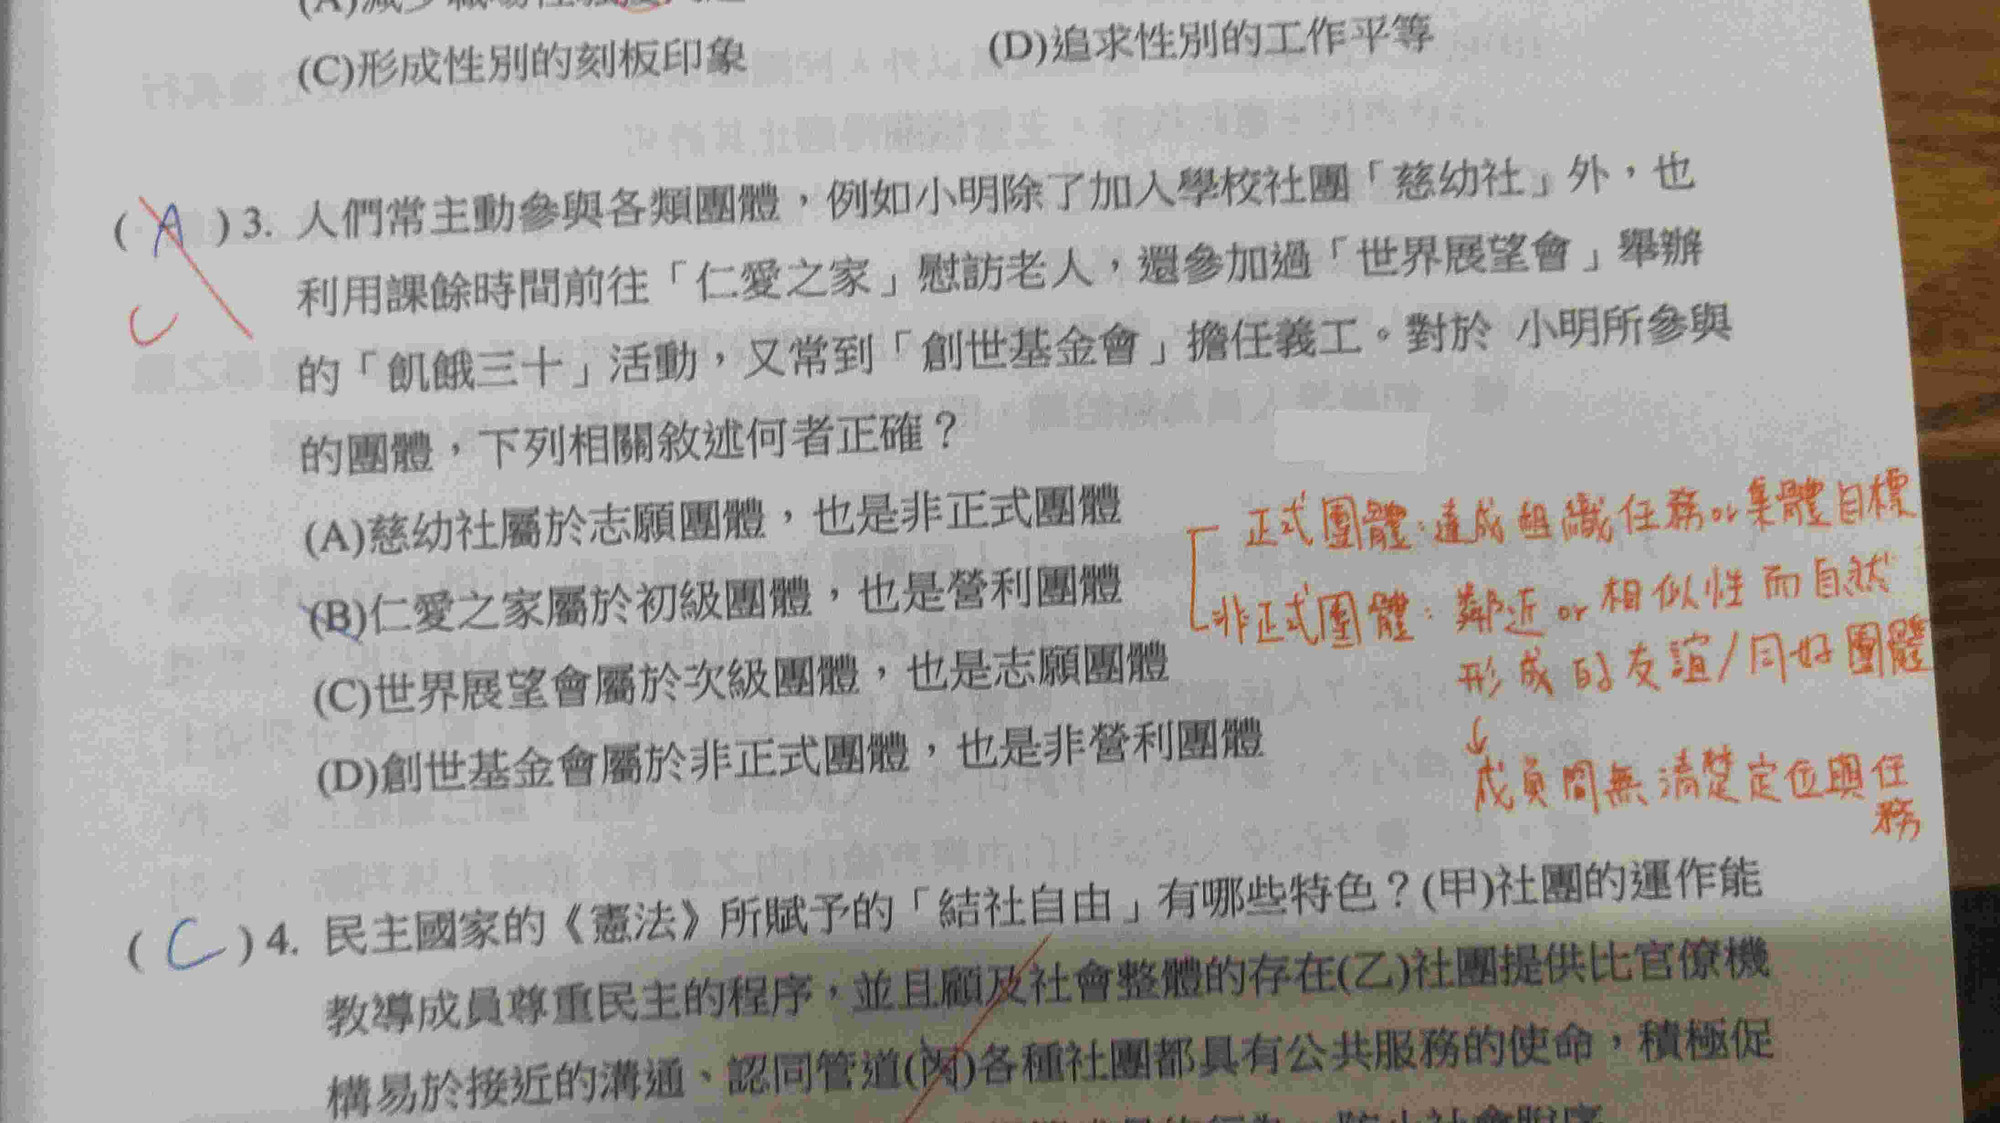 (C)形成性別的刻板印象 (D)追求性別的工作平等
( A ) 3. 人們常主動參與各類團體，例如小明除了加入學校社團「慈幼社」外，也
C
利用課餘時間前往「仁愛之家」慰訪老人，還參加過「世界展望會」舉辦
的「飢餓三十」活動，又常到「創世基金會」擔任義工。對於 小明所參與
的團體，下列相關敘述何者正確？
(A)慈幼社屬於志願團體，也是非正式團體
(B)仁愛之家屬於初級團體，也是營利團體
(C)世界展望會屬於次級團體，也是志願團體
(D)創世基金會屬於非正式團體，也是非營利團體
正式團體：達成組織任務or集體目標
非正式團體：鄰近or相似性而自然
形成的友誼/同好團體
↓
成員間無清楚定位與任
務
( C ) 4. 民主國家的《憲法》所賦予的「結社自由」有哪些特色？(甲)社團的運作能
教導成員尊重民主的程序，並且顧及社會整體的存在(乙)社團提供比官僚機
構易於接近的溝通、認同管道(丙)各種社團都具有公共服務的使命，積極促